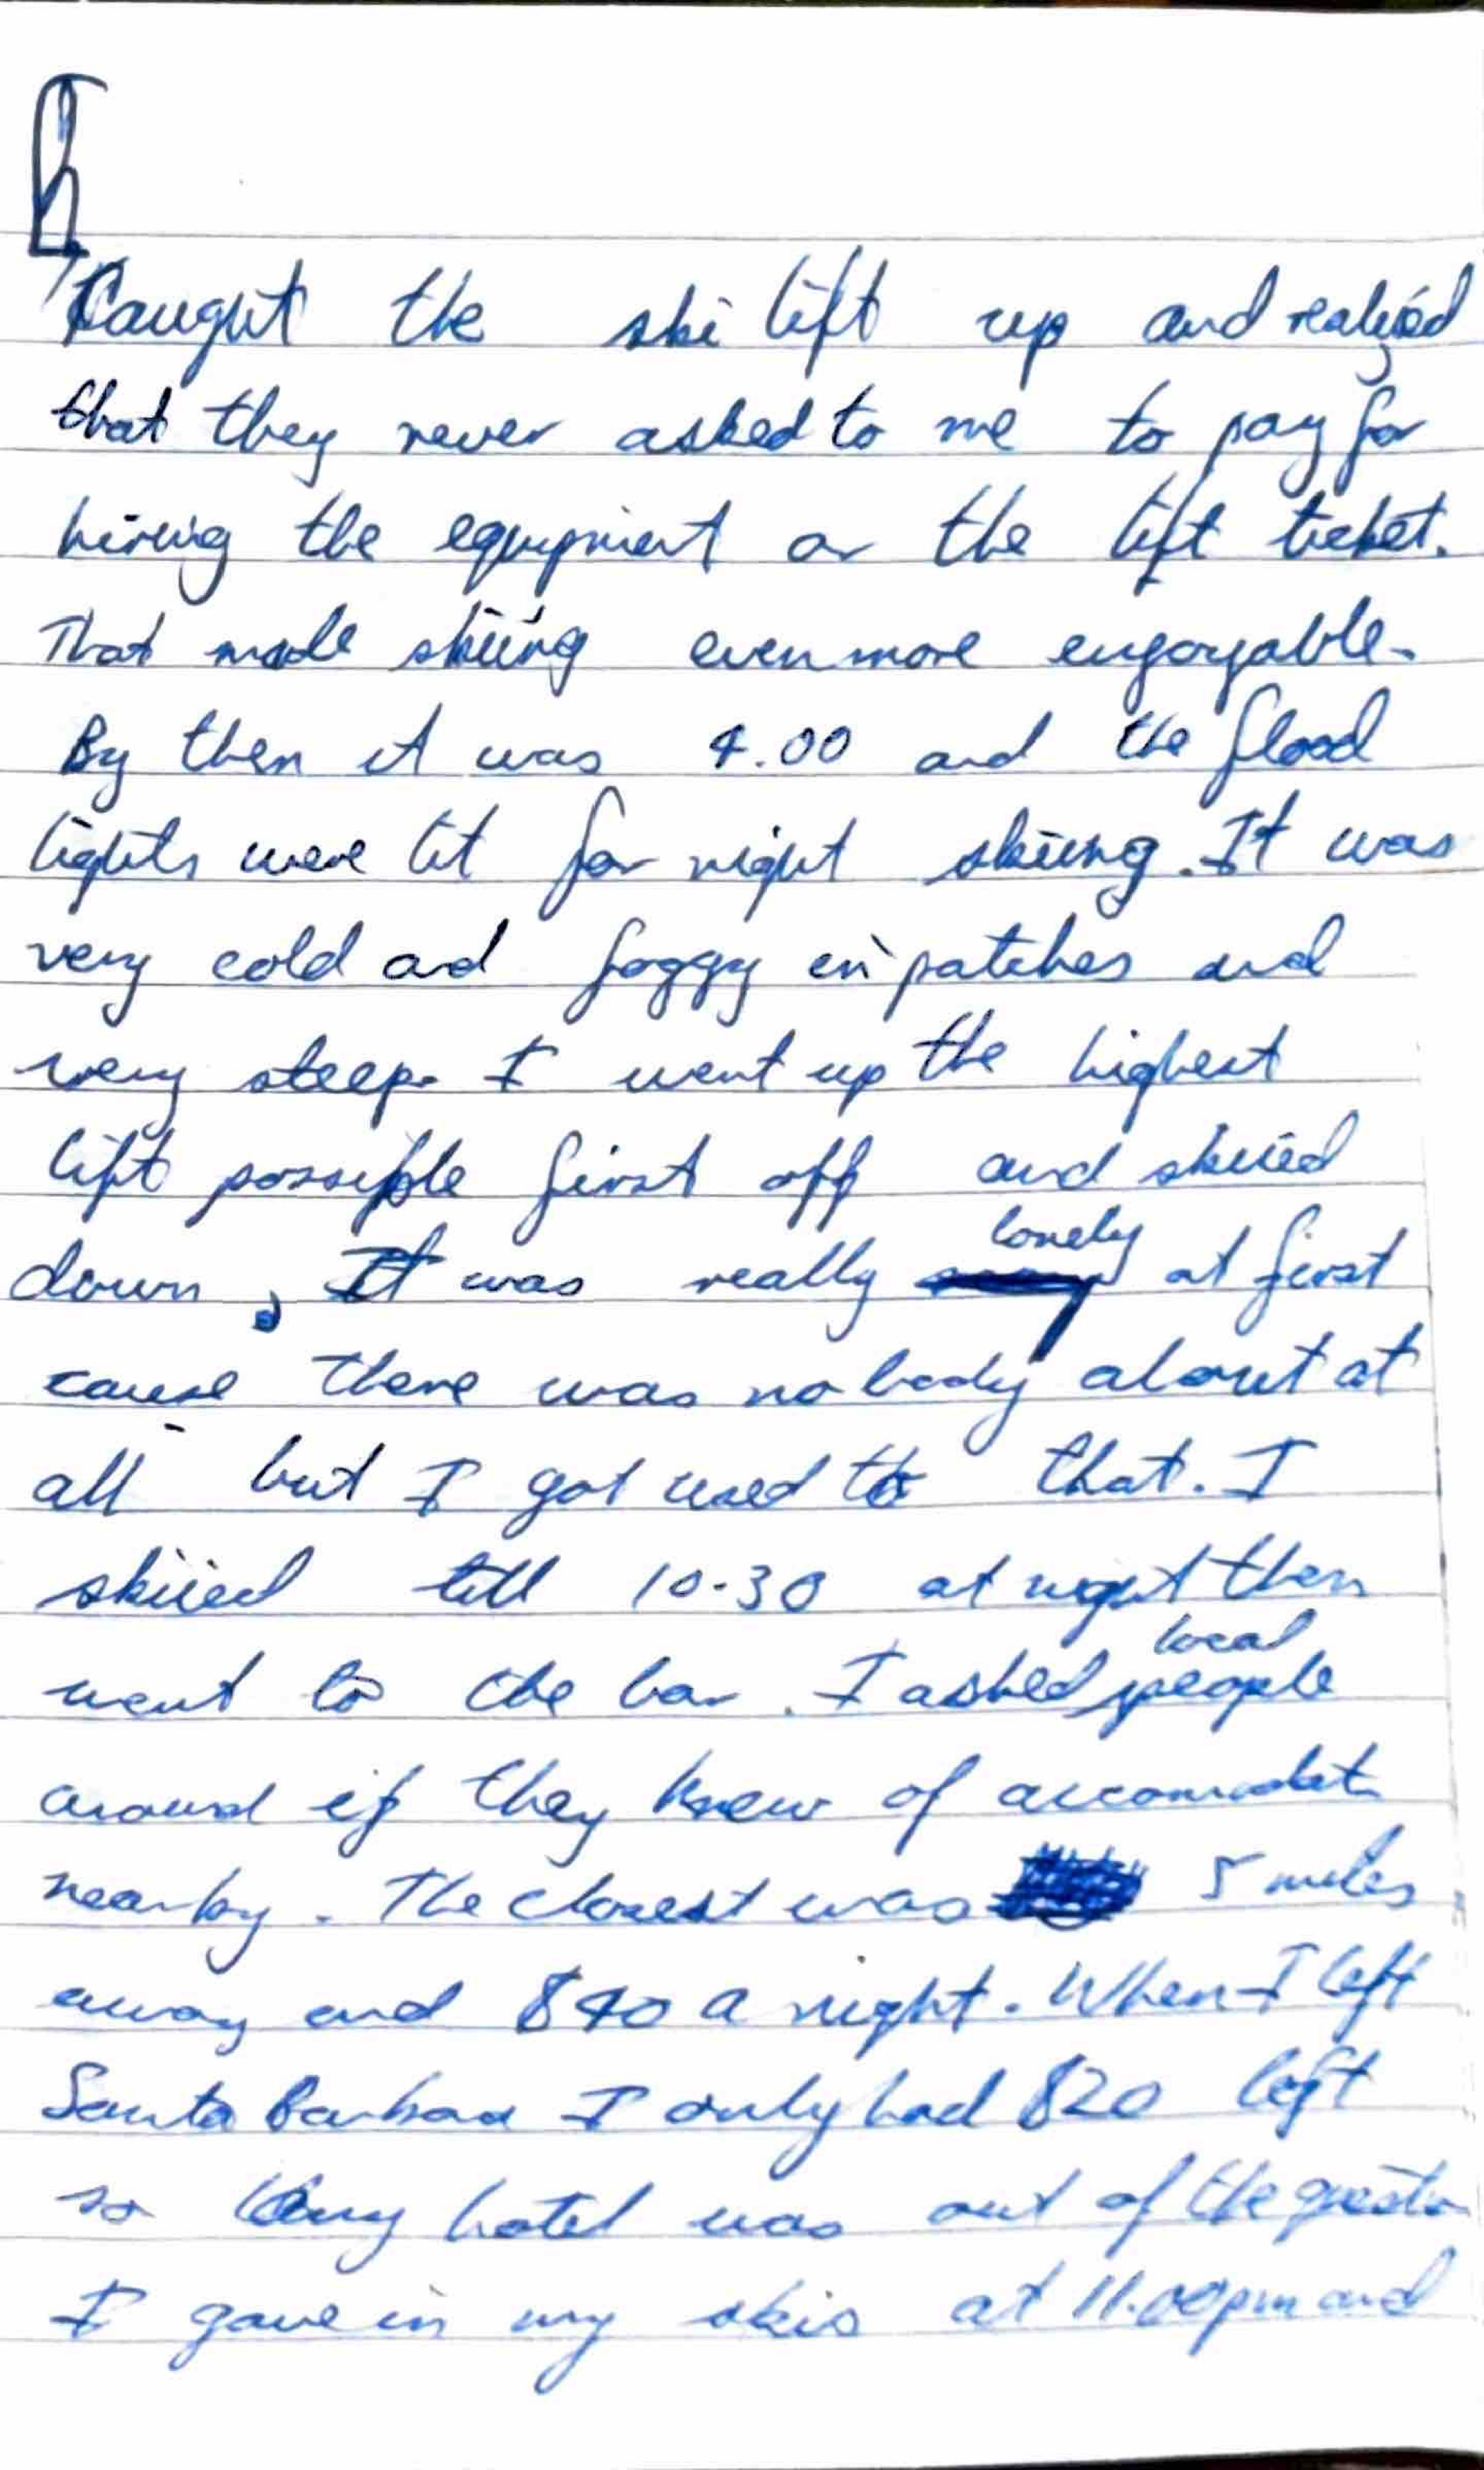 Caught the ski lift up and realised
that they never asked to me to pay for
hiring the equipment or the lift ticket.
That made skiing even more engoyable.
By then it was 4.00 and the flood
lights were lit for night skiing. It was
very cold and foggy in patches and
very steep. I went up the highest
lift possible first off and skiied
down, It was really lonely at first
cause there was nobody about at
all but I got used to that. I
skiied till 10-30 at night then
went to the bar. I asked local people
around if they knew of accomodat
nearby. The closest was 5 miles
away and $40 a night. When I left
Santa Barbara I only had $20 left
so any hotel was out of the questo
I gave in my skis at 11.00pm and